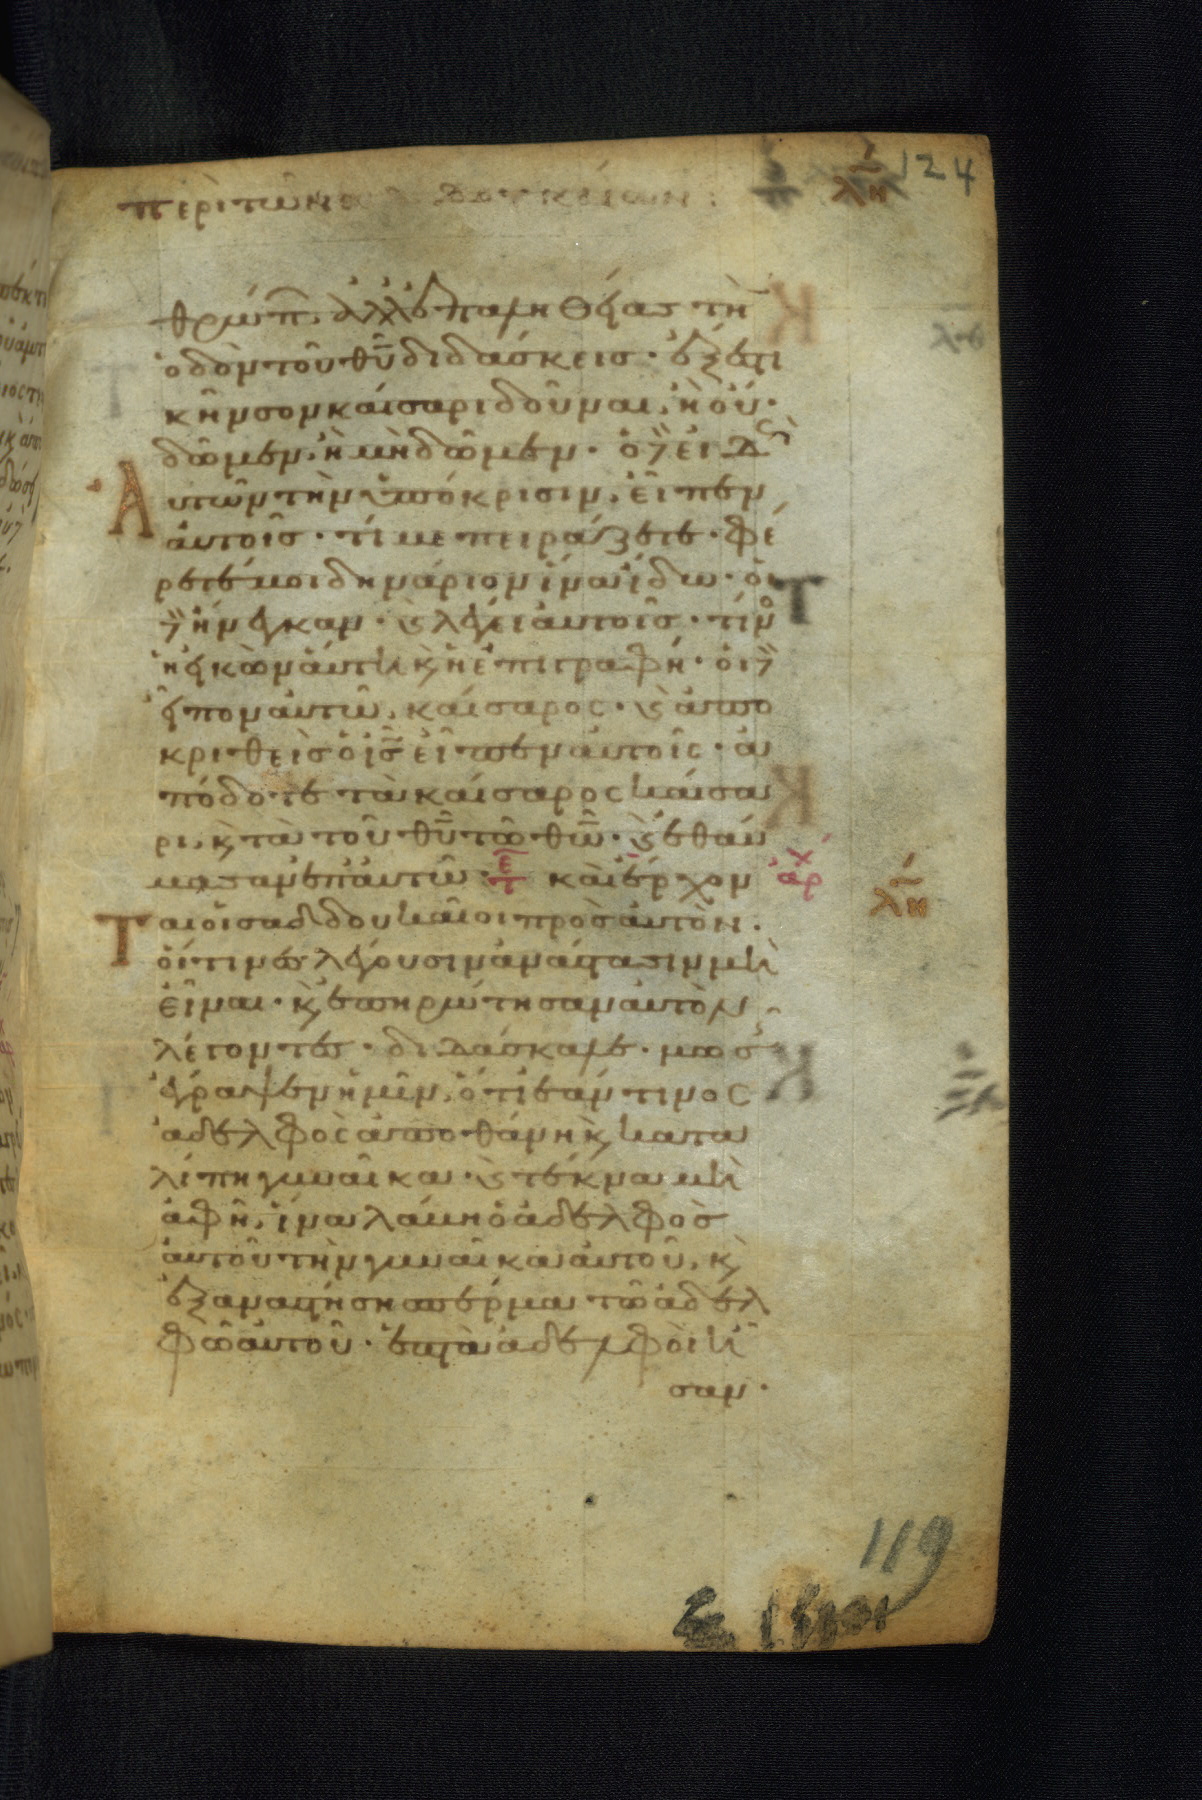 περὶ τῶν σαδδουκαίων :
124
θρώπ ἀλλ ἐπ ἀληθείας τὴν
ὁδὸν τοῦ θῦ διδάσκεις · ἔξεστι
κῆνσον καίσαρι δοῦναι, ἢ οὔ ·
δῶμεν, ἢ μὴ δῶμεν · ὁ δὲ εἰδὼς
Αυτῶν τὴν ὑπόκρισιν, εἶπεν
αὐτοῖς · τί με πειράζετε · φέ
ρετέ μοι δηνάριον ἵνα ἴδω · οἱ
δὲ ἤνεγκαν · καὶ λέγει αὐτοῖς · τίνος
ἡ εἰκὼν αὕτη κ ἡ ἐπιγραφή · οἱ δὲ
εἶπον αὐτῶ, καίσαρος · καὶ ἀπο
κριθεὶς ὁ ις εἶπεν αὐτοῖς · ἀ
πόδοτε τὰ καίσαρος καίσα
ρι, κ τὰ τοῦ θῦ τῶ θῶ · καὶ ἐθαύ
μασαν ἐπ αὐτῶ · τε καὶ ἔρχον αρχ
Ται οἱ σαδδουκαῖοι πρὸς αὐτὸν · λη
οἵτινες λέγουσιν ἀνάστασιν μὴ
εἶναι · κ ἐπηρώτησαν αὐτὸν
λέγοντες · διδάσκαλε · μωσῆς
ἔγραψεν ἡμῖν, ὅτι ἐάν τινος
ἀδελφὸς ἀποθάνη κ κατα
λίπη γυναῖκα · καὶ τέκνα μὴ
ἀφῆ, ἵνα λάβη ὁ ἀδελφὸς
αὐτοῦ τὴν γυναῖκα αὐτοῦ, κ
ἐξαναστήση σπέρμα τῶ ἀδελ
φῶ αὐτοῦ · ἑπτὰ ἀδελφοὶ ἦ
σαν ·
119